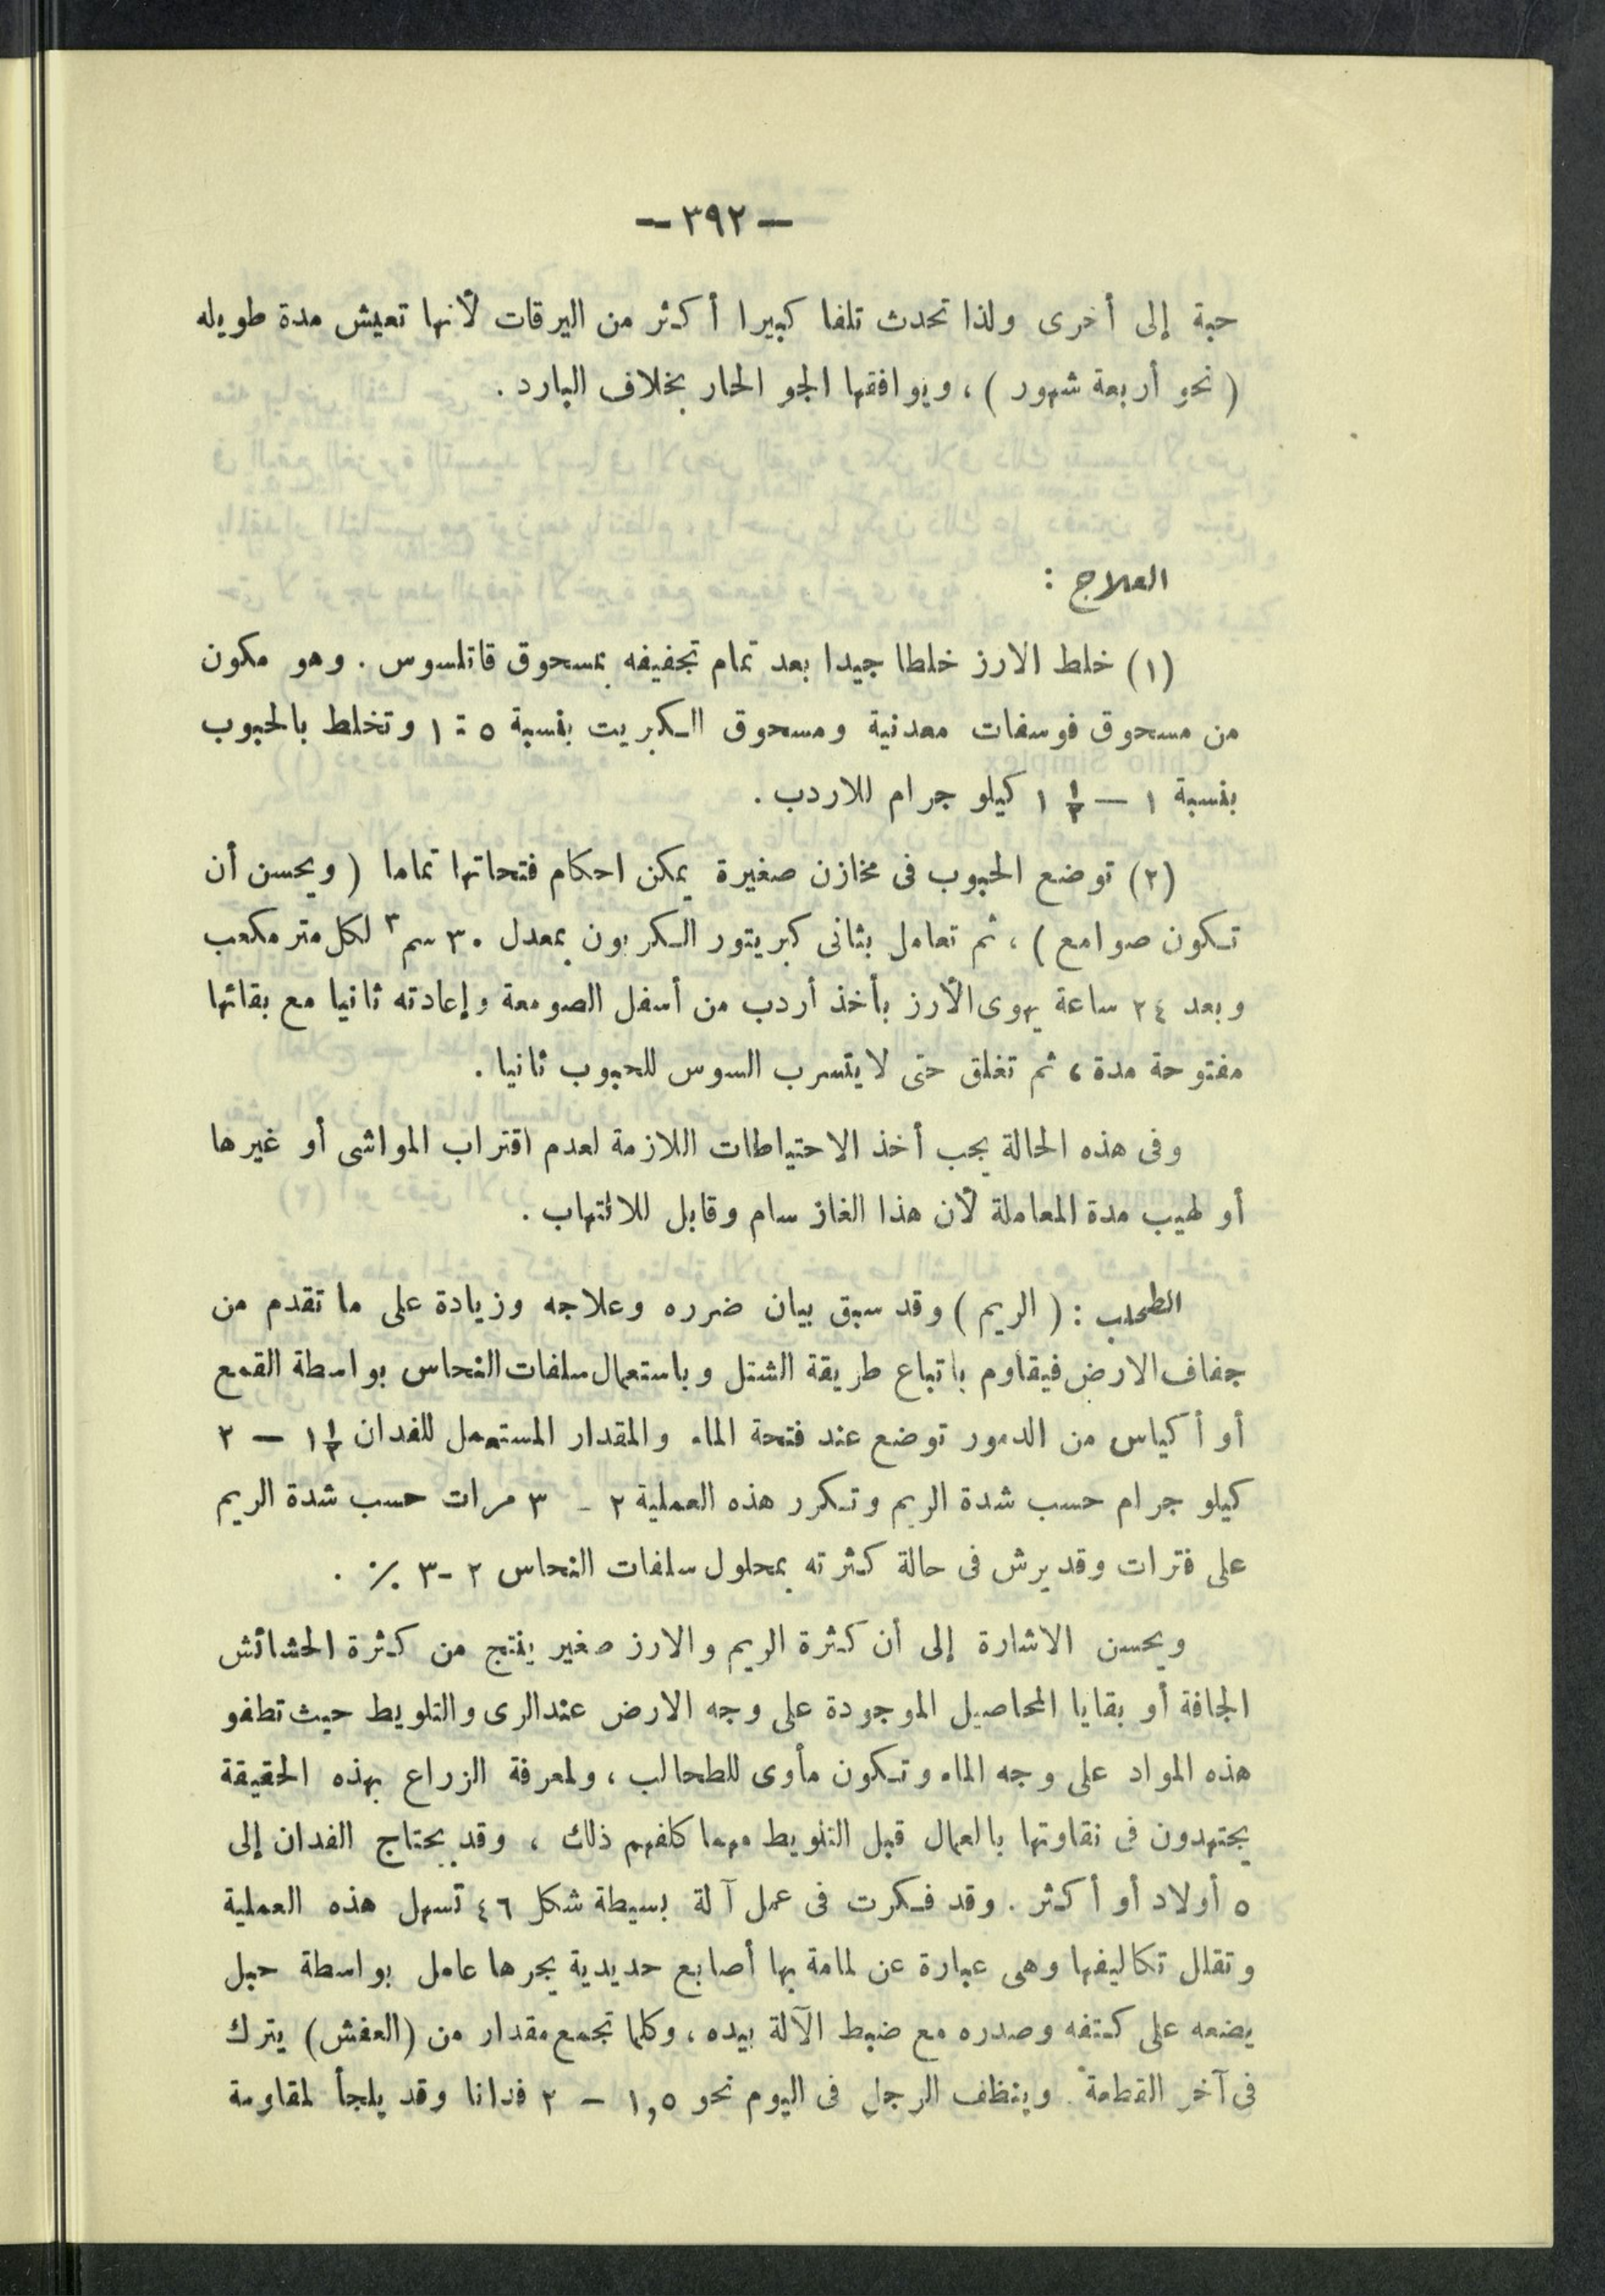 — ٣٩٢ —
حبة إلى أخرى ولذا تحدث تلفا كبيرا أكثر من اليرقات لأنها تعيش مدة طويله
( نحو أربعة شهور ) ، ويوافقها الجو الحار بخلاف البارد .
العلاج :
(١) خلط الارز خلطا جيدا بعد تمام تجفيفه بمسحوق قاتلسوس . وهو مكون
من مسحوق فوسفات معدنية ومسحوق الكبريت بنسبة ٥ : ١ وتخلط بالحبوب
بنسبة ١ — ١ ½ كيلو جرام للاردب .
(٢) توضع الحبوب فى مخازن صغيرة يمكن احكام فتحاتها تماما ( ويحسن أن
تكون صوامع ) ، ثم تعامل بثانى كبريتور الكربون بمعدل ٣٠ سم٣ لكل متر مكعب
وبعد ٢٤ ساعة يهوى الأرز بأخذ أردب من أسفل الصومعة وإعادته ثانيا مع بقائها
مفتوحة مدة ، ثم تغلق حتى لا يتسرب السوس للحبوب ثانيا .
وفى هذه الحالة يجب أخذ الاحتياطات اللازمة لعدم اقتراب المواشى أو غيرها
أو لهيب مدة المعاملة لأن هذا الغاز سام وقابل للالتهاب .
الطحلب : ( الريم ) وقد سبق بيان ضرره وعلاجه وزيادة على ما تقدم من
جفاف الارض فيقاوم باتباع طريقة الشتل وباستعمال سلفات النحاس بواسطة القمع
أو أكياس من الدمور توضع عند فتحة الماء والمقدار المستعمل للفدان ١½ — ٢
كيلو جرام حسب شدة الريم وتكرر هذه العملية ٢ - ٣ مرات حسب شدة الريم
على فترات وقد يرش فى حالة كثرته بمحلول سلفات النحاس ٢ -٣ ٪ .
ويحسن الاشارة إلى أن كثرة الريم والارز صغير ينتج من كثرة الحشائش
الجافة أو بقايا المحاصيل الموجودة على وجه الارض عند الرى والتلويط حيث تطفو
هذه المواد على وجه الماء وتكون مأوى للطحالب ، ولمعرفة الزراع بهذه الحقيقة
يجتهدون فى نقاوتها بالعمال قبل التلويط مهما كلفهم ذلك ، وقد يحتاج الفدان إلى
٥ أولاد أو أكثر . وقد فكرت فى عمل آلة بسيطة شكل ٤٦ تسهل هذه العملية
وتقلل تكاليفها وهى عبارة عن لمامة بها أصابع حديدية يجرها عامل بواسطة حبل
يضعه على كتفه وصدره مع ضبط الآلة بيده ، وكلما تجمع مقدار من (العفش) يترك
فى آخر القطعة . وينظف الرجل فى اليوم نحو ١,٥ — ٢ فدانا وقد يلجأ لمقاومة